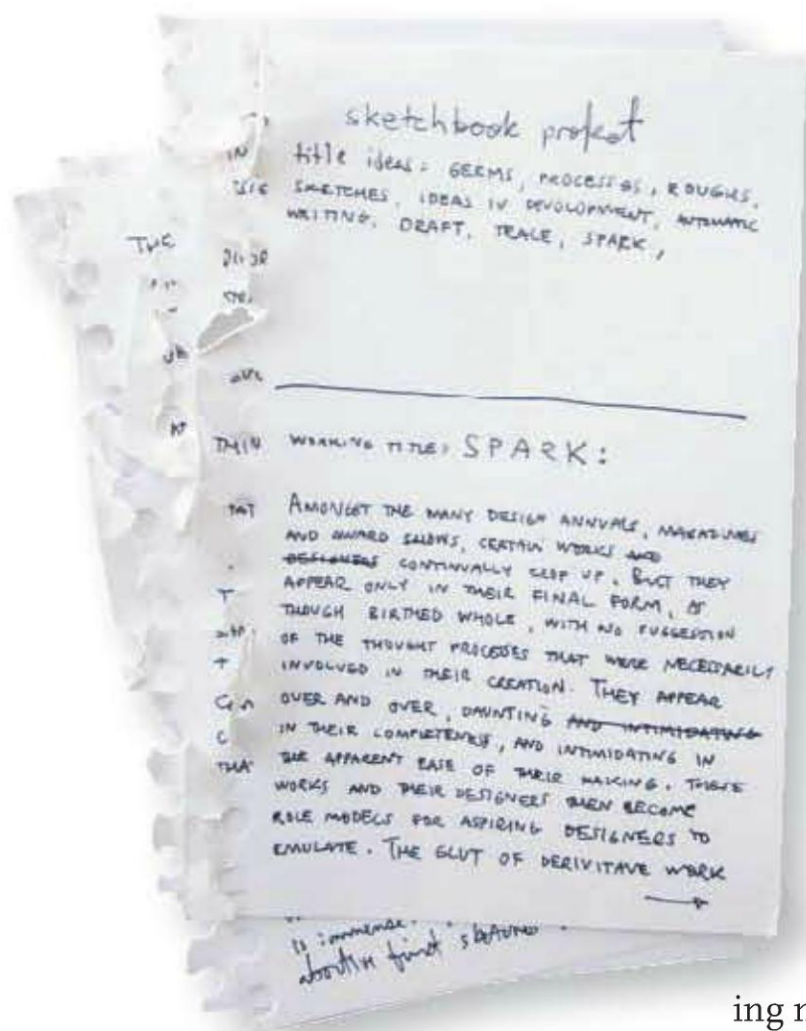 sketchbook project
title ideas: GERMS, PROCESSES, ROUGHS,
SKETCHES, IDEAS IN DEVOLOPMENT, AUTOMATIC
WRITING, DRAFT, TRACE, SPARK,
WORKING TITLE: SPARK:
AMONGST THE MANY DESIGN ANNUALS, MAGAZINES
AND AWARD SHOWS, CERTAIN WORKS AND
DESIGNERS CONTINUALLY CROP UP. BUT THEY
APPEAR ONLY IN THEIR FINAL FORM, AS
THOUGH BIRTHED WHOLE, WITH NO SUGGESTION
OF THE THOUGHT PROCESSES THAT WERE NECESSARILY
INVOLVED IN THEIR CREATION. THEY APPEAR
OVER AND OVER, DAUNTING AND INTIMIDATING
IN THEIR COMPLETENESS, AND INTIMIDATING IN
THE APPARENT EASE OF THEIR MAKING. THESE
WORKS AND THEIR DESIGNERS THEN BECOME
ROLE MODELS FOR ASPIRING DESIGNERS TO
EMULATE. THE GLUT OF DERIVITAVE WORK
is immense.
THE
IN
THIN
THA
ing